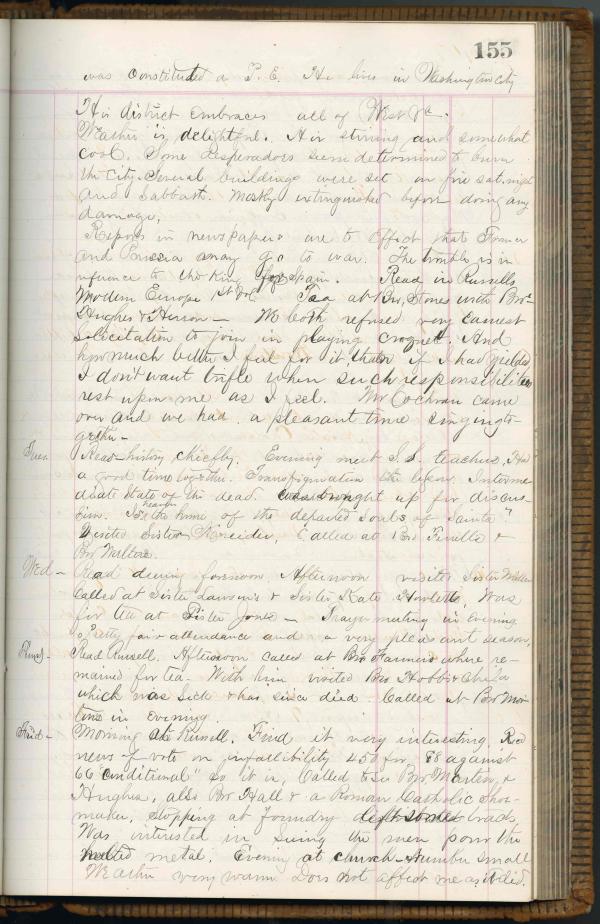 155
was constituted a P. E. He lives in Washington city
His district embraces all of West Va.
Weather is delightful. Air stirring and somewhat
cool. Some desperadoes seem determined to burn
the city. Several buildings were set on fire sat. night
and Sabbath. Mostly extinguished before doing any
damage.
Reports in newspapers are to effect that France
and Prussia may go to war. The trouble is in
reference to the King for Spain. Read in Russells
Modern Europe 1st Vol. Tea at Bro. Stones with Bros
Hughes & - We both refused very earnest
solicitation to join in playing croquet. And
how much better I feel for it, than if I had yielded
I don't want trifle when such responsibilities
rest upon me as I feel. Mr Cochran came
over and we had a pleasant time singing to-
gether -
Tues. Read history chiefly. Evening meet S.S. teachers. Had
a good time together. Transfiguration the lesson. Interme-
diate State of the dead was brought up for discus-
sion. "Is heaven the home of the departed Souls of Saints".
Visited Sister Called at Bro &
Bro
Wed - Read during forenoon. Afternoon visited Sister
Called at Sister & Sister Kate Was
for tea at Sister Jones - Prayer meeting in evening
Pretty fair attendance and a very pleasant season.
Thurs - Read Russell. Afternoon called at Bro Farmers where re-
mained for tea. With him visited Bro Hobbs & Child
which was sick & has since died. Called at Bro Mor-
tons in evening.
Frid - Morning Russell. Find it very interesting. Rec'd
news of vote on infallibility 450 for, 88 against
66 "conditional" so it is. Called to see Bro &
Hughes, also Bro Hall & a Roman Catholic Shoe-
maker. Stopping at foundry left some tracts.
Was interested in seeing the men pour the
melted metal. Evening at church - number small
Weather very warm does not affect me as it did.